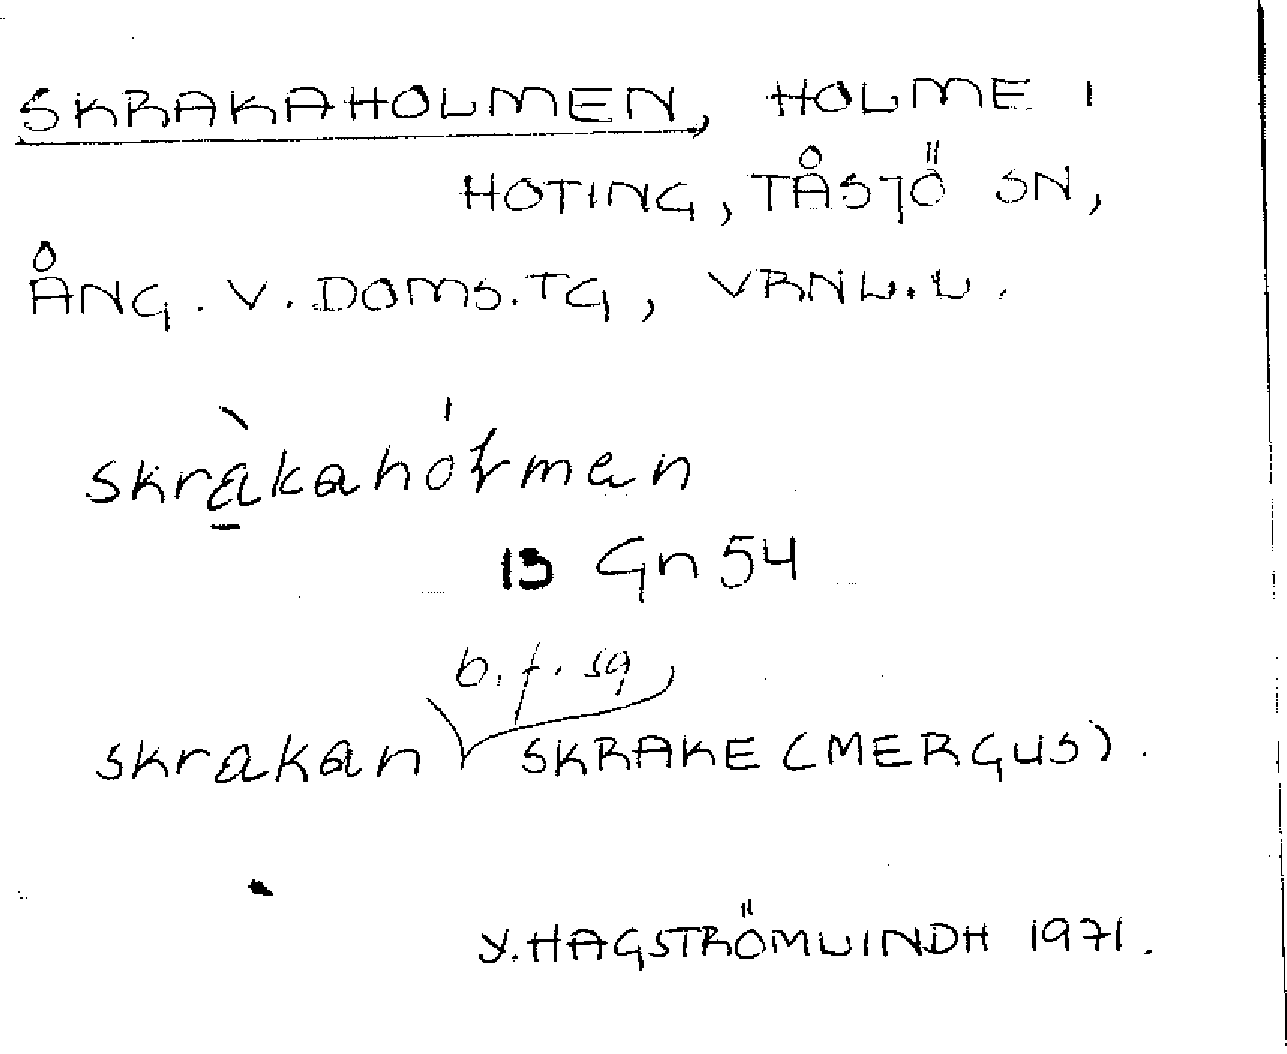 SKRAKAHOLMEN, HOLME I
HOTING, TÅSJÖ SN,
ÅNG. V. DOMS.TG, VRNL.L.
skràkahółmen
13 Gn 54
b. f. sg
skrakan SKRAKE (MERGUS).
Y. HAGSTRÖMLINDH 1971.